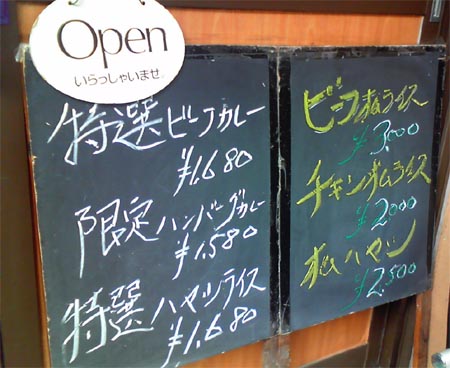 Open
いらっしゃいませ
特選ビーフカレー
¥1.680
限定ハンバーグカレー
¥1.580
特選ハヤシライス
¥1.680
ビーフオムライス
¥3.000
チキンオムライス
¥2000
オムハヤシ
¥2.500